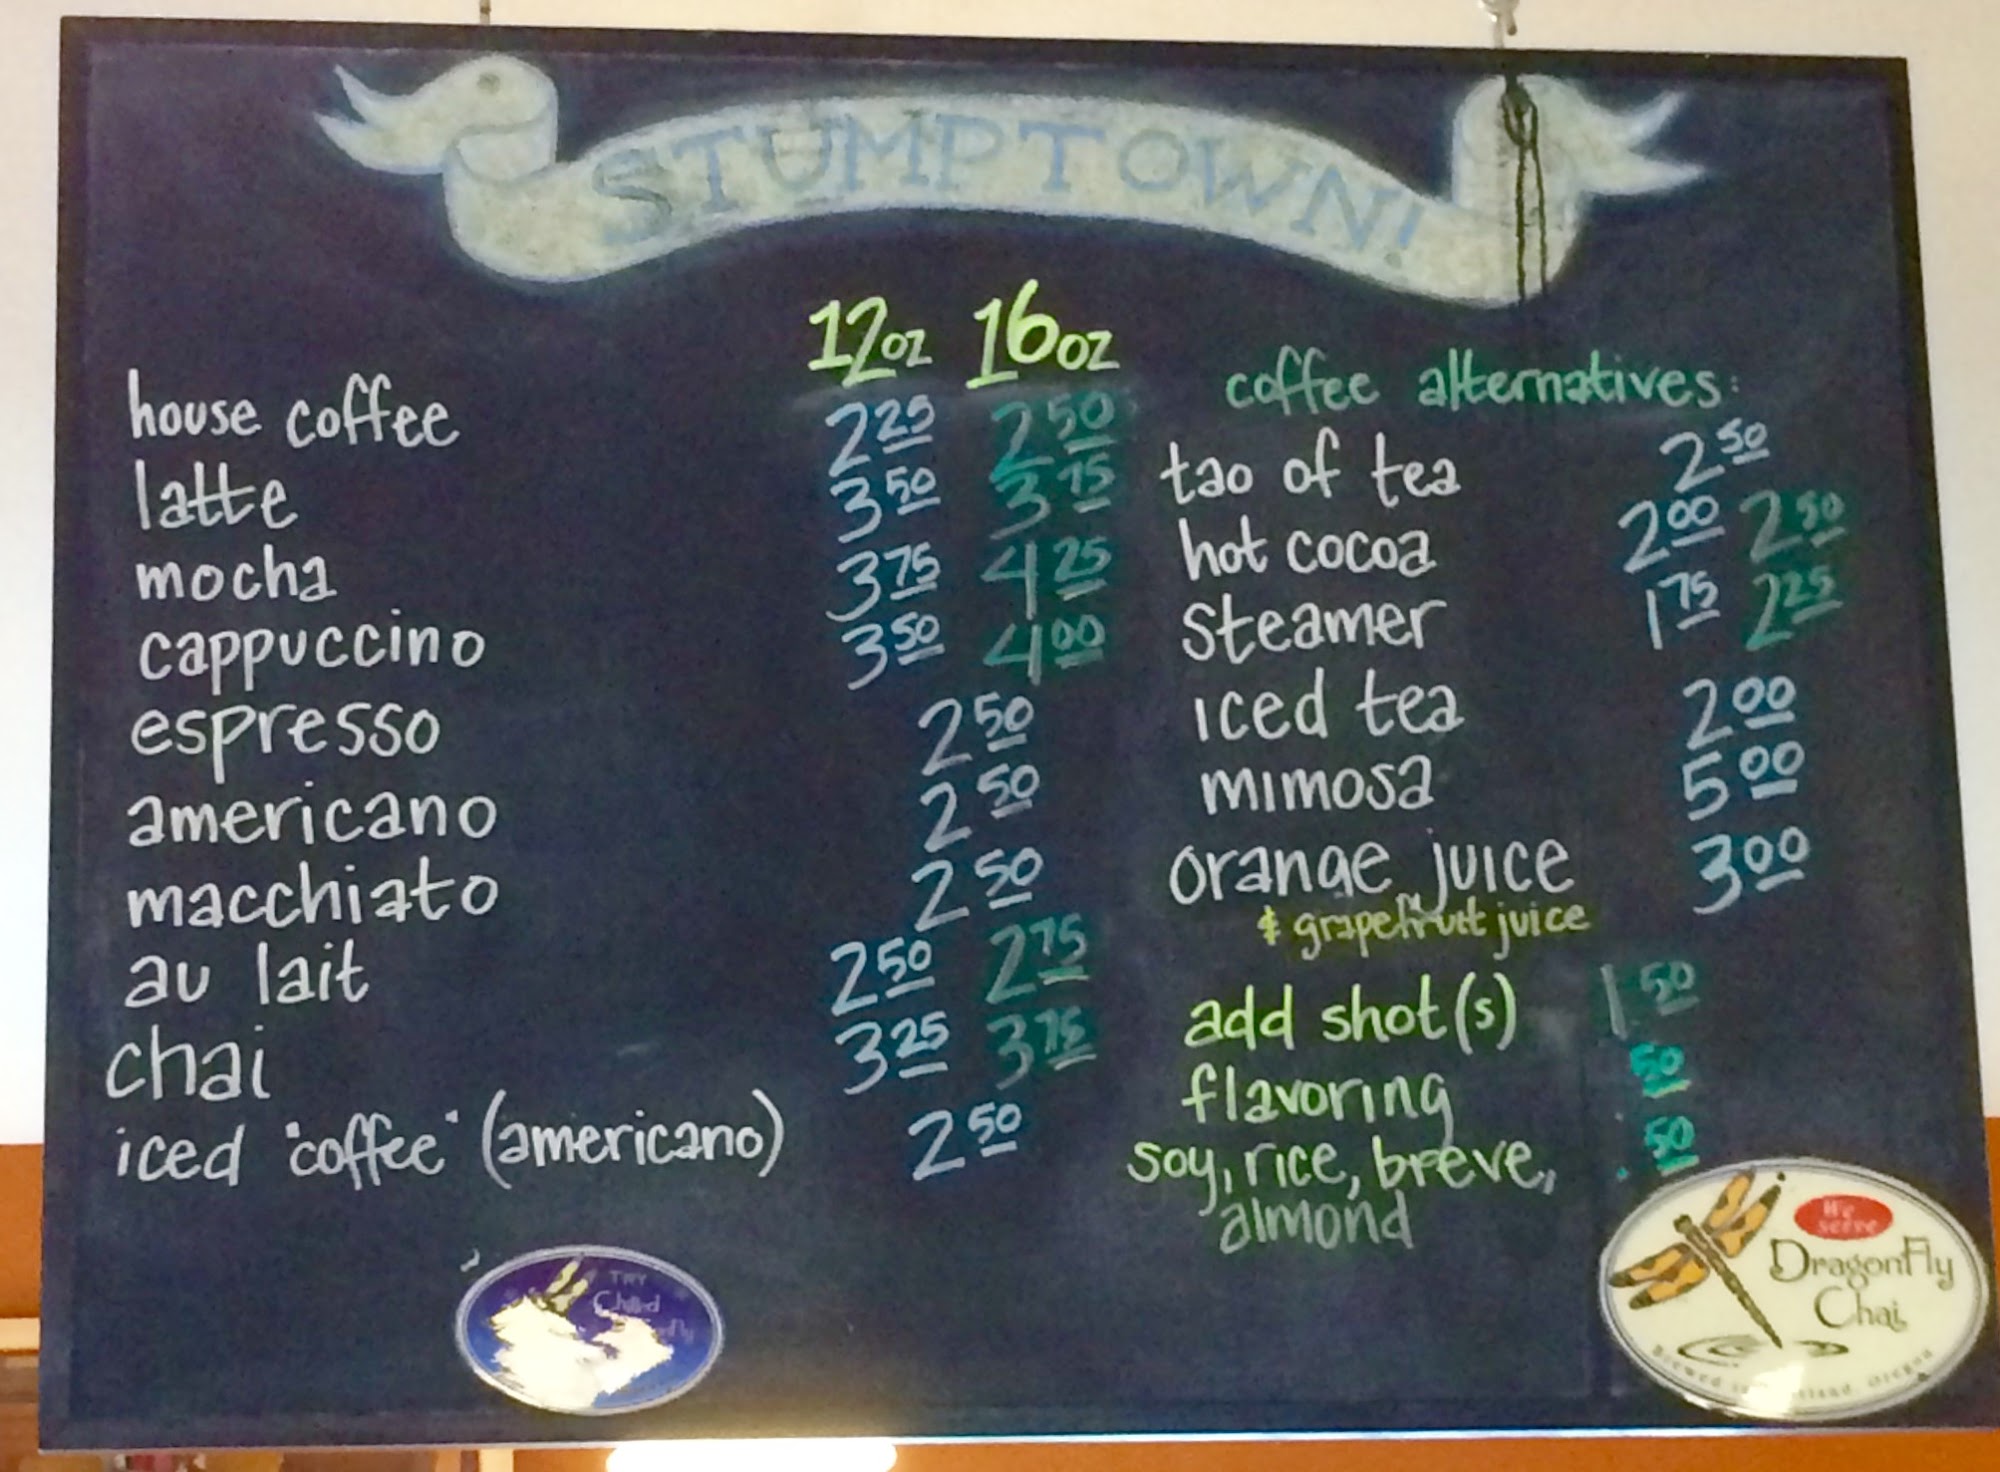 STUMPTOWN!
12oz 16oz
house coffee 2 25 2 50
latte 3 50 3 75
mocha 3 75 4 25
cappuccino 3 50 4 00
espresso 2 50
americano 2 50
macchiato 2 50
au lait 2 50 2 75
chai 3 25 3 75
iced "coffee" (americano) 2 50
coffee alternatives:
tao of tea 2 50
hot cocoa 2 00 2 50
steamer 1 75 2 25
iced tea 2 00
mimosa 5 00
orange juice 3 00
& grapefruit juice
add shot(s) 1 50
flavoring .50
soy, rice, breve, .50
almond
TRY
Chilled
We
serve
DragonFly
Chai
Brewed Oregon